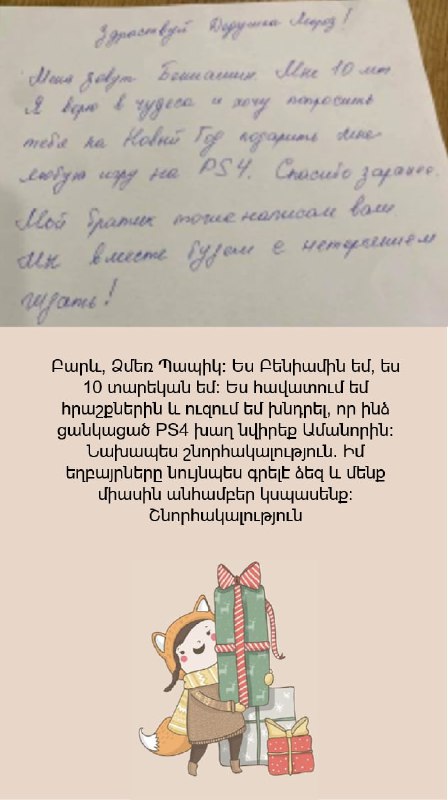 Здраствуй Дедушка Мороз!
Меня зовут Бениамин. Мне 10 лет.
Я верю в чудеса и хочу попросить
тебя на Новый Год подарить мне
любую игру на PS4. Спасибо заранее.
Мой братик тоже написал вам.
Мы вместе будем с нетерпением
ждать!
Բարև, Ձմեռ Պապիկ: Ես Բենիամին եմ, ես
10 տարեկան եմ: Ես հավատում եմ
հրաշքներին և ուզում եմ խնդրել, որ ինձ
ցանկացած PS4 խաղ նվիրեք Ամանորին:
Նախապես շնորհակալություն. Իմ
եղբայրները նույնպես գրելէ ձեզ և մենք
միասին անհամբեր կսպասենք:
Շնորհակալություն